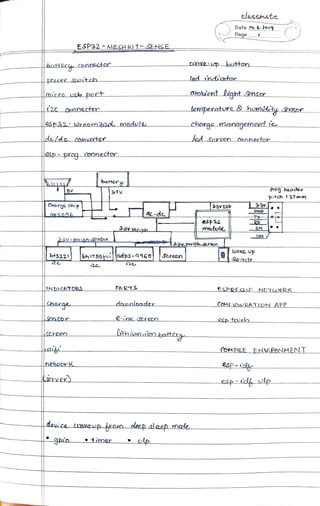 classmate
Date
Page
ESP32 - MESHKIT - SENSE
battery connector
wake-up button
power switch
led indicator
micro usb port
ambient light sensor
i2c connector
temperature & humidity sensor
esp32 - wroom32d module
charge management ic
dc/dc converter
lcd screen connector
esp - prog connector
battery
5V
3.7V
prog header
pitch 1.27mm
charge chip
dc-dc
3.3V ESP
esp32
module
3.3V
GND
TX
RX
EN
3.3V periph
3.3V periph screen
hts221
bh1750fvi
adps-9960
screen
wake up
switch
i2c
i2c
i2c
INDICATORS
PARTS
ESPRESSIF NETWORK
charge
downloader
CONFIGURATION APP
sensor
e-ink screen
esp touch
screen
lithium-ion battery
wifi
COMPILE ENVIRONMENT
network
esp-idf
(server)
esp-idf ulp
device wakeup from deep sleep mode
• gpio • timer • ulp